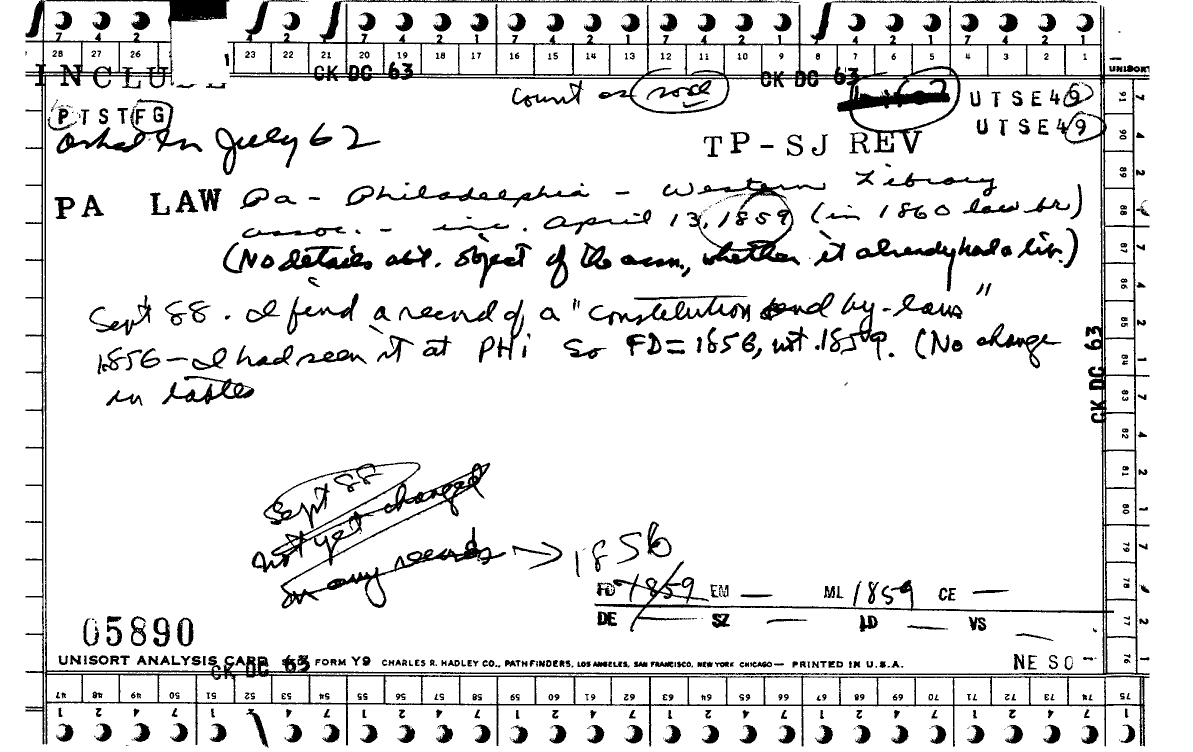 7 4 2 1 7 4 2 1 7 4 2 1 7 4 2 1 7 4 2 1
28 27 26 23 22 21 20 19 18 17 16 15 14 13 12 11 10 9 8 7 6 5 4 3 2 1
UNISORT
INCLUDE
CK DC 63
CK DC 63
count as
UTSE49
PTSTFG
UTSE49
in July 62
TP-SJ REV
PA LAW Pa - Philadelphia - Western Library
assoc. - inc. April 13, 1859 (in 1860 law br)
(No details abt. object of the assn, whether it already had a libr.)
Sept 88. I find a record of a "Constitution and by-laws"
1856 - I had seen it at PHi So FD=1856, not 1859. (No change
in tables
CK DC 63
Sept 88
not yet changed
in any records → 1856
FD 1859 EM — ML 1859 CE —
DE — SZ — LD — VS —
05890
UNISORT ANALYSIS CARD FORM Y9 CHARLES R. HADLEY CO., PATHFINDERS, LOS ANGELES, SAN FRANCISCO, NEW YORK CHICAGO — PRINTED IN U.S.A.
CK DC 63
NE SO -
91 90 89 88 87 86 85 84 83 82 81 80 79 78 77 76
47 48 49 50 51 52 53 54 55 56 57 58 59 60 61 62 63 64 65 66 67 68 69 70 71 72 73 74 75